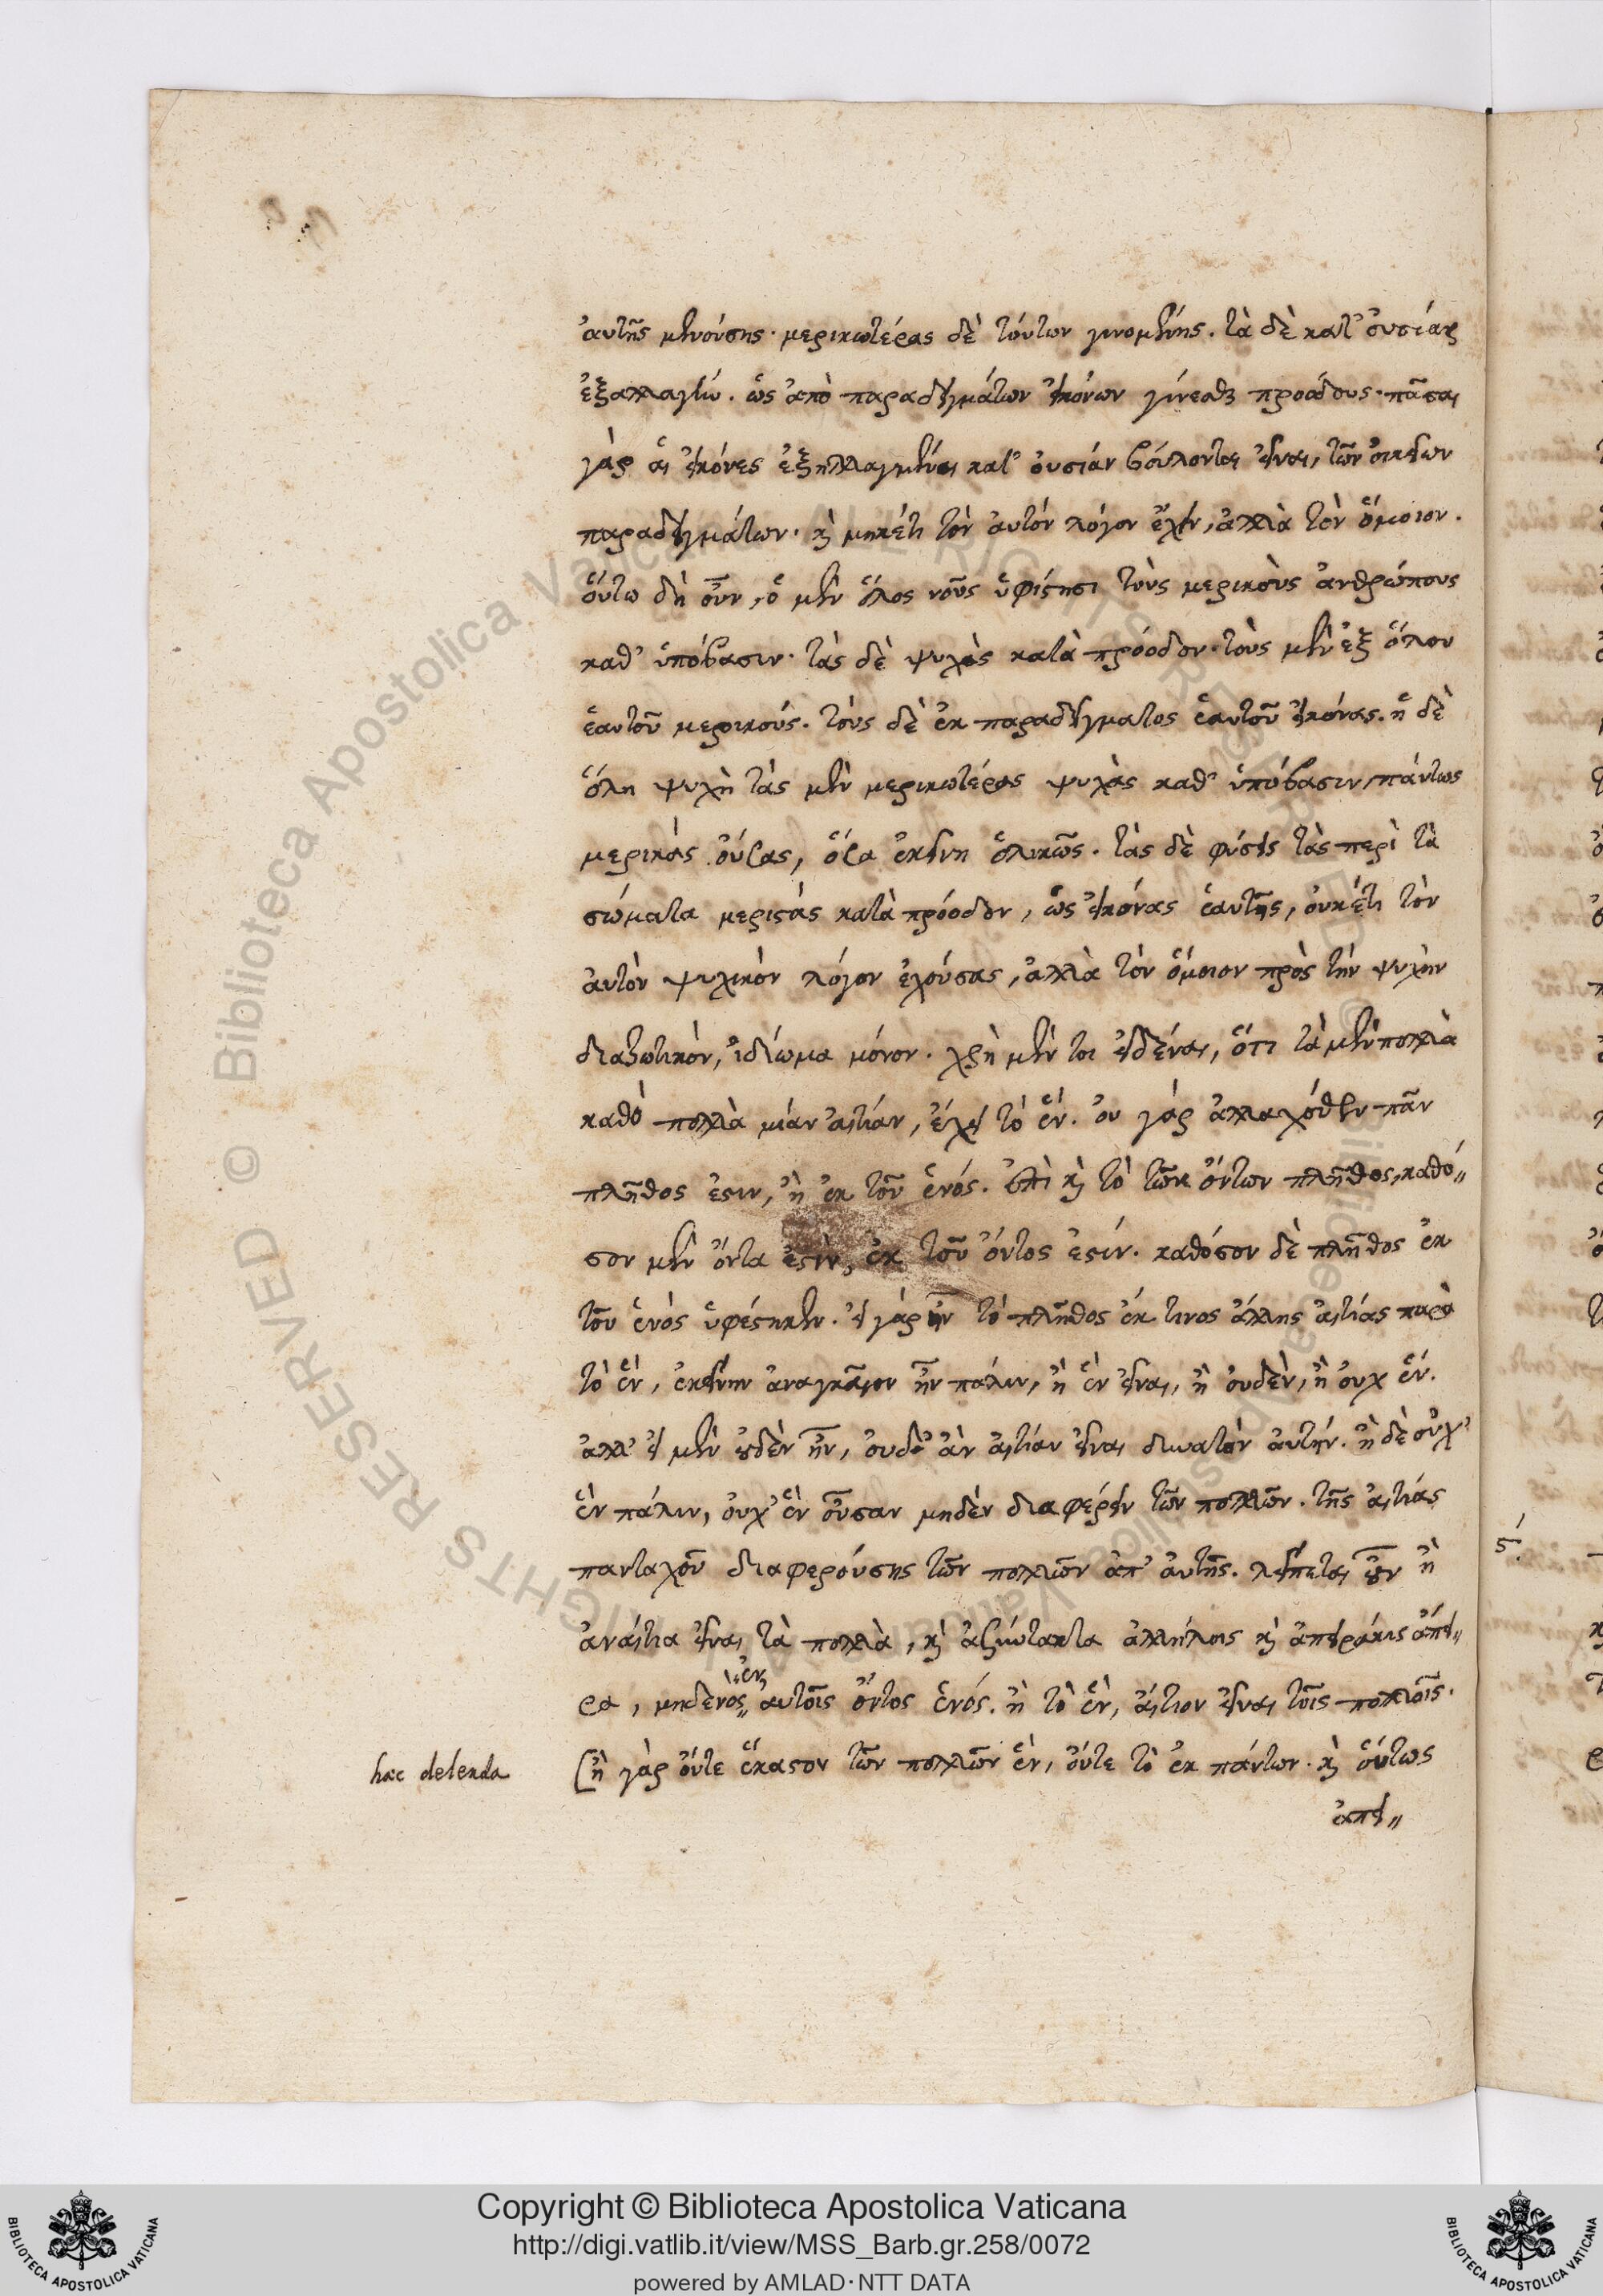 ἀυτῆς μενούσης· μερικωτέρας δὲ τόυτων γινομένης. τὰ δὲ κατ' ὀυσίαν
ἐξαλλαγὴν. ὡς ἀπὸ παραδειγμάτων ἐικόνων γίνεσθαι προόδους· πᾶσαι
γάρ ἁι ἐικόνες ἐξηλλαγμέναι κατ' ὀυσίαν βόυλονται ἐιναι, τῶν ὀικείων
παραδειγμάτων· καὶ μηκέτι τὸν ἀυτόν λόγον ἔχειν, ἀλλὰ τὸν ὅμοιον.
ὅυτω δὴ οὖν, ὁ μὲν ὅλος νοῦς ὑφίστησι τὸυς μερικὸυς ἀνθρώπους
καθ' ὑπόβασιν· τὰς δὲ ψυχὰς κατὰ πρόοδον· τὸυς μὲν ἐξ ὅλου
ἑαυτοῦ μερικούς. τὸυς δὲ ἐκ παραδείγματος ἑαυτοῦ ἐικόνας. ἡ δὲ
ὅλη ψυχὴ τὰς μὲν μερικωτέρας ψυχὰς καθ' ὑπόβασιν, πάντως
μερικὰς ὄυσας, ὅσα ἐκείνη ὁλικῶς. τὰς δὲ φύσεις τὰς περὶ τὰ
σώματα μεριστάς κατὰ πρόοδον, ὡς ἐικόνας ἑαυτῆς, ὀυκέτι τὸν
ἀυτὸν ψυχικὸν λόγον ἐχούσας, ἀλλὰ τὸν ὅμοιον πρὸς τὴν ψυχὴν
διαζωτικόν, ἰδίωμα μόνον. χρὴ μέν τοι ἐιδέναι, ὅτι τὰ μὲν πολλὰ
καθό πολλὰ μίαν ἀιτίαν, ἔχει τὸ ἕν. ὀυ γάρ ἀλλαχόθεν πᾶν
πλῆθος ἐστιν, ἢ ἐκ τοῦ ἑνός. ἐπεὶ καὶ τὸ τῶν ὄντων πλῆθος, καθό〃
σον μὲν ὄντα ἐστὶν, ἐκ τοῦ ὄντος ἐστίν. καθόσον δὲ πλῆθος ἐκ
τοῦ ἑνὸς ὑφέστηκεν. ἐι γάρ ἦν τὸ πλῆθος ἐκ τινος ἄλλης ἀιτίας παρὰ
τὸ ἕν, ἐκείνην ἀναγκᾶιον ἦν πάλιν, ἢ ἓν ἐιναι, ἢ ὀυδὲν, ἢ ὀυχ ἕν.
ἀλλ' ἐι μὲν ὀυδὲν ἦν, ὀυδ' ἂν ἀιτίαν ἐιναι δυνατὸν ἀυτήν. ἢ δὲ οὐχ'
ἓν πάλιν, ὀυχ' ἓν οὖσαν μηδὲν διαφέρειν τῶν πολλῶν. τῆς ἀιτίας
πανταχοῦ διαφερόυσης τῶν πολλῶν ἀπ' ἀυτῆς. λείπεται οὖν ἢ
ἀνάιτια ἐιναι τὰ πολλὰ, καὶ ἀξύντακτα ἀλλήλοις καὶ ἀπειράκις ἄπει〃
ρα, μηδενὸς〃 ἀυτοῖς ὄντος ἑνός. ἢ τὸ ἓν, ἄιτιον ἐιναι τοῖς πολλοῖς.
〃ἐν
hæc delenda
[ἢ γὰρ ὄυτε ἕκαστον τῶν πολλῶν ἓν, ὄυτε τὸ ἐκ πάντων· καὶ ὅυτως
ἀπει〃
Copyright © Biblioteca Apostolica Vaticana
http://digi.vatlib.it/view/MSS_Barb.gr.258/0072
powered by AMLAD·NTT DATA